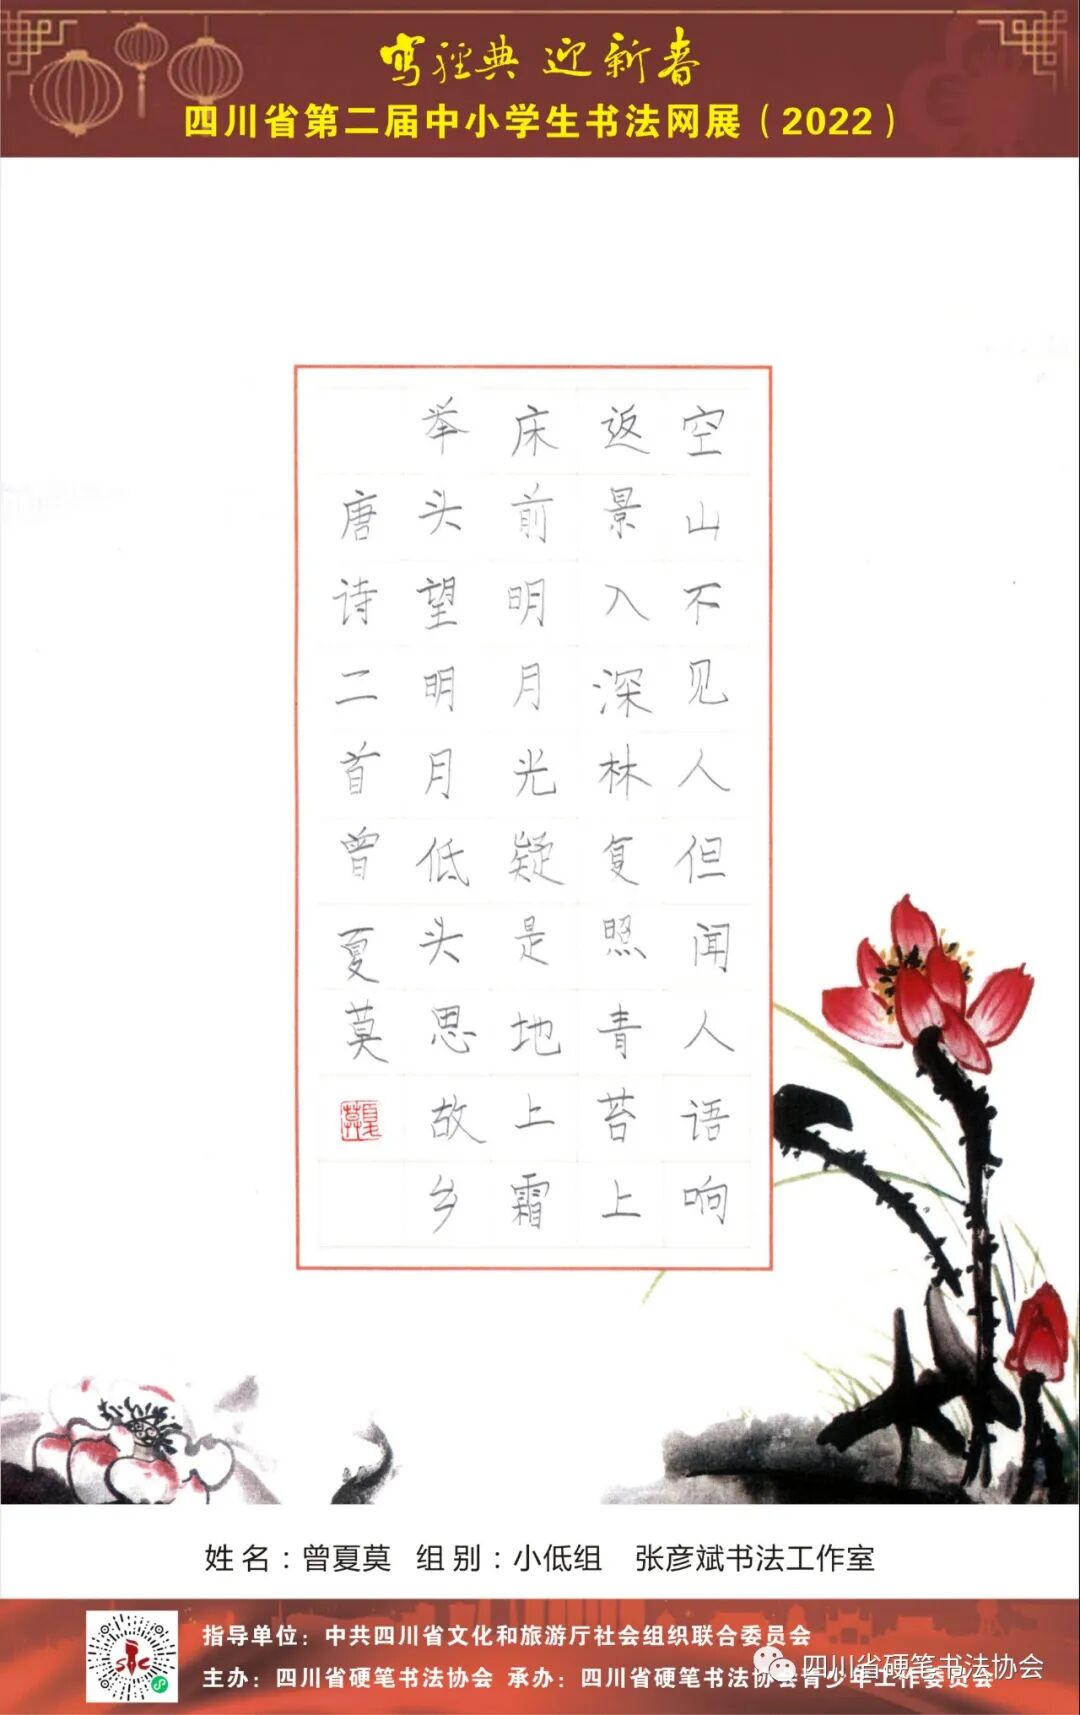 写经典 迎新春
四川省第二届中小学生书法网展（2022）
空山不见人但闻人语响
返景入深林复照青苔上
床前明月光疑是地上霜
举头望明月低头思故乡
唐诗二首曾夏莫
夏莫
姓名：曾夏莫 组别：小低组 张彦斌书法工作室
指导单位：中共四川省文化和旅游厅社会组织联合委员会
主办：四川省硬笔书法协会 承办：四川省硬笔书法协会青少年工作委员会
四川省硬笔书法协会